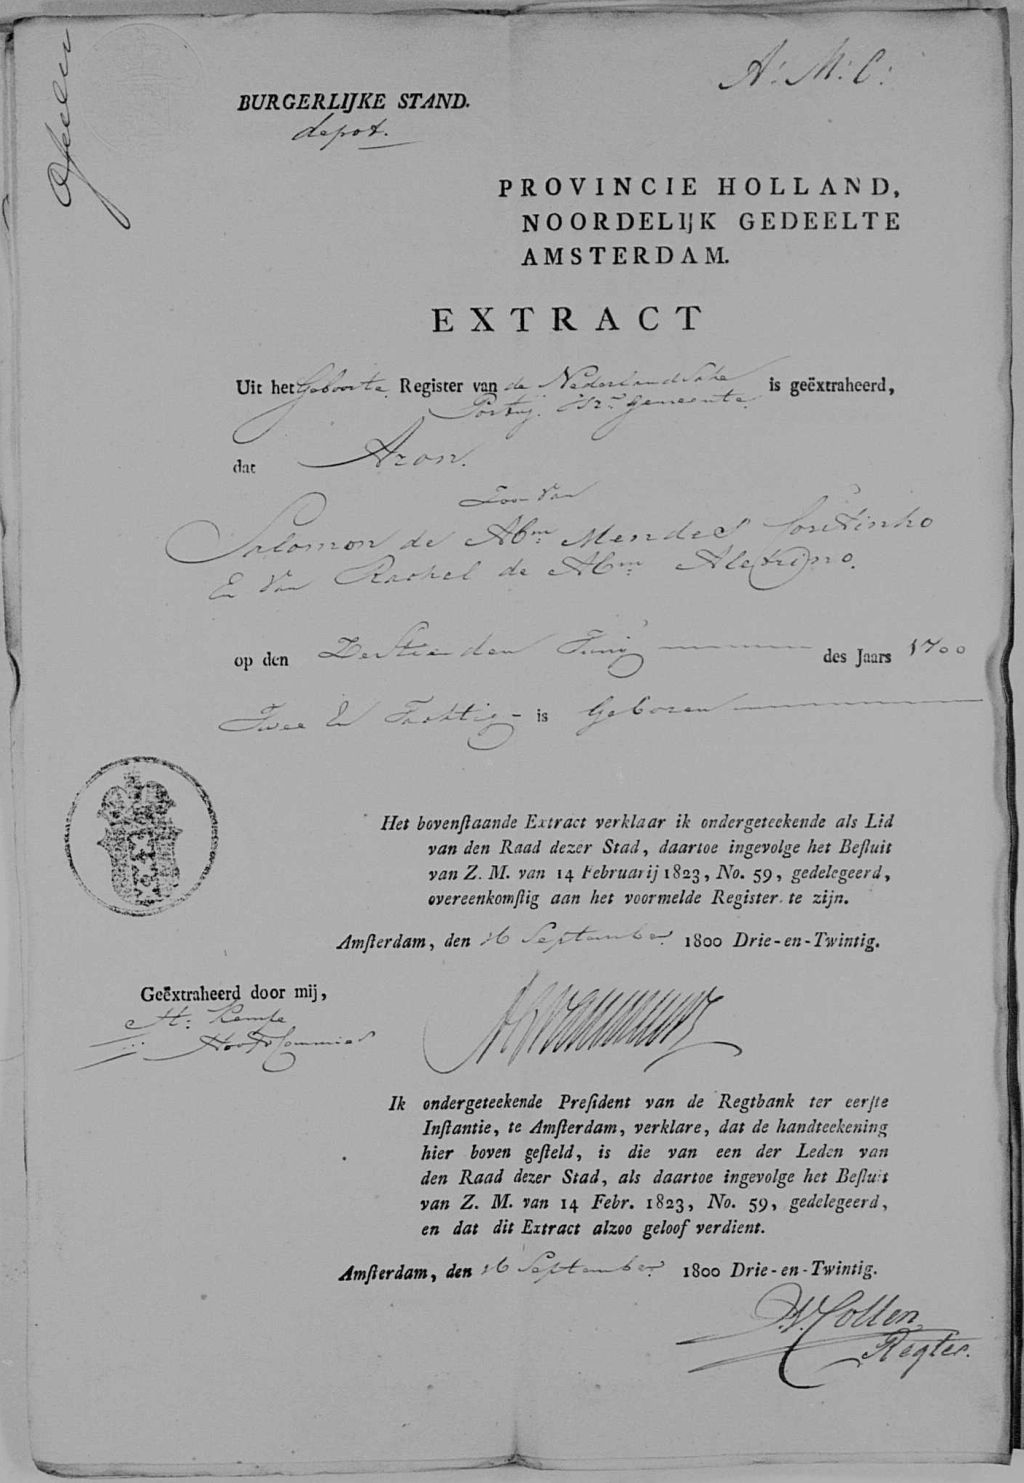 A: M: C:
BURGERLIJKE STAND.
depot.
PROVINCIE HOLLAND,
NOORDELIJK GEDEELTE
AMSTERDAM.
EXTRACT
Uit het Geboorte Register van de Nederlandsche is geëxtraheerd,
Portug. Isr. gemeente
dat Aron.
Zoon Van
Salomon de Abm Mendes Coutinho
En Van Rachel de Abm Aletrino.
op den Dertienden Junij des Jaars 1700
Twee En Tachtig is Geboren
Het bovenſtaande Extract verklaar ik ondergeteekende als Lid
van den Raad dezer Stad, daartoe ingevolge het Beſluit
van Z. M. van 14 Februarij 1823, No. 59, gedelegeerd,
overeenkomſtig aan het voormelde Register te zijn.
Amſterdam, den 16 September 1800 Drie-en-Twintig.
Geëxtraheerd door mij,
H: Kempe
Hooft Commies
Ik ondergeteekende Preſident van de Regtbank ter eerſte
Inſtantie, te Amſterdam, verklare, dat de handteekening
hier boven geſteld, is die van een der Leden van
den Raad dezer Stad, als daartoe ingevolge het Beſluit
van Z. M. van 14 Febr. 1823, No. 59, gedelegeerd,
en dat dit Extract alzoo geloof verdient.
Amſterdam, den 16 September 1800 Drie-en-Twintig.
Regter.